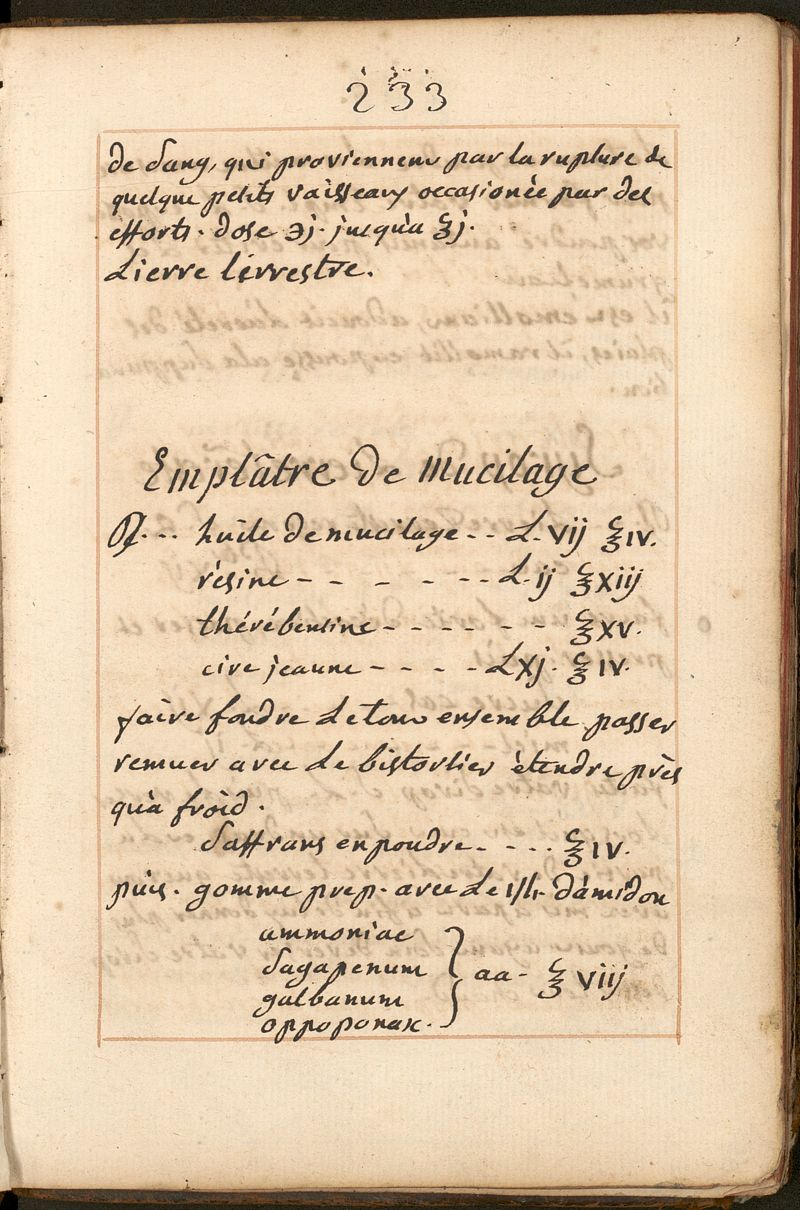 233
de sang, qui proviennent par la rupture de
quelque petits vaisseaux occasionée par des
efforts. dose ℈j. jusqu'à ℥j.
Lierre térrestre.
Emplâtre de Mucilage
℞... huile de mucilage -- L. vij ℥iv.
résine - - - - -- L. ij ℥xiij
thérébentine - - - - - - ℥xv.
cire jeaune - - - - L xj. ℥iv.
faire fondre le tout ensemble passer
remuer avec le bistortier étendre près
qu'à froid.
saffrans en poudre. - ... ℥iv.
puis. gomme prep. avec le d'amidon
ammoniac
sagapenum
galbanum
oppoponax.
aa - ℥ viij